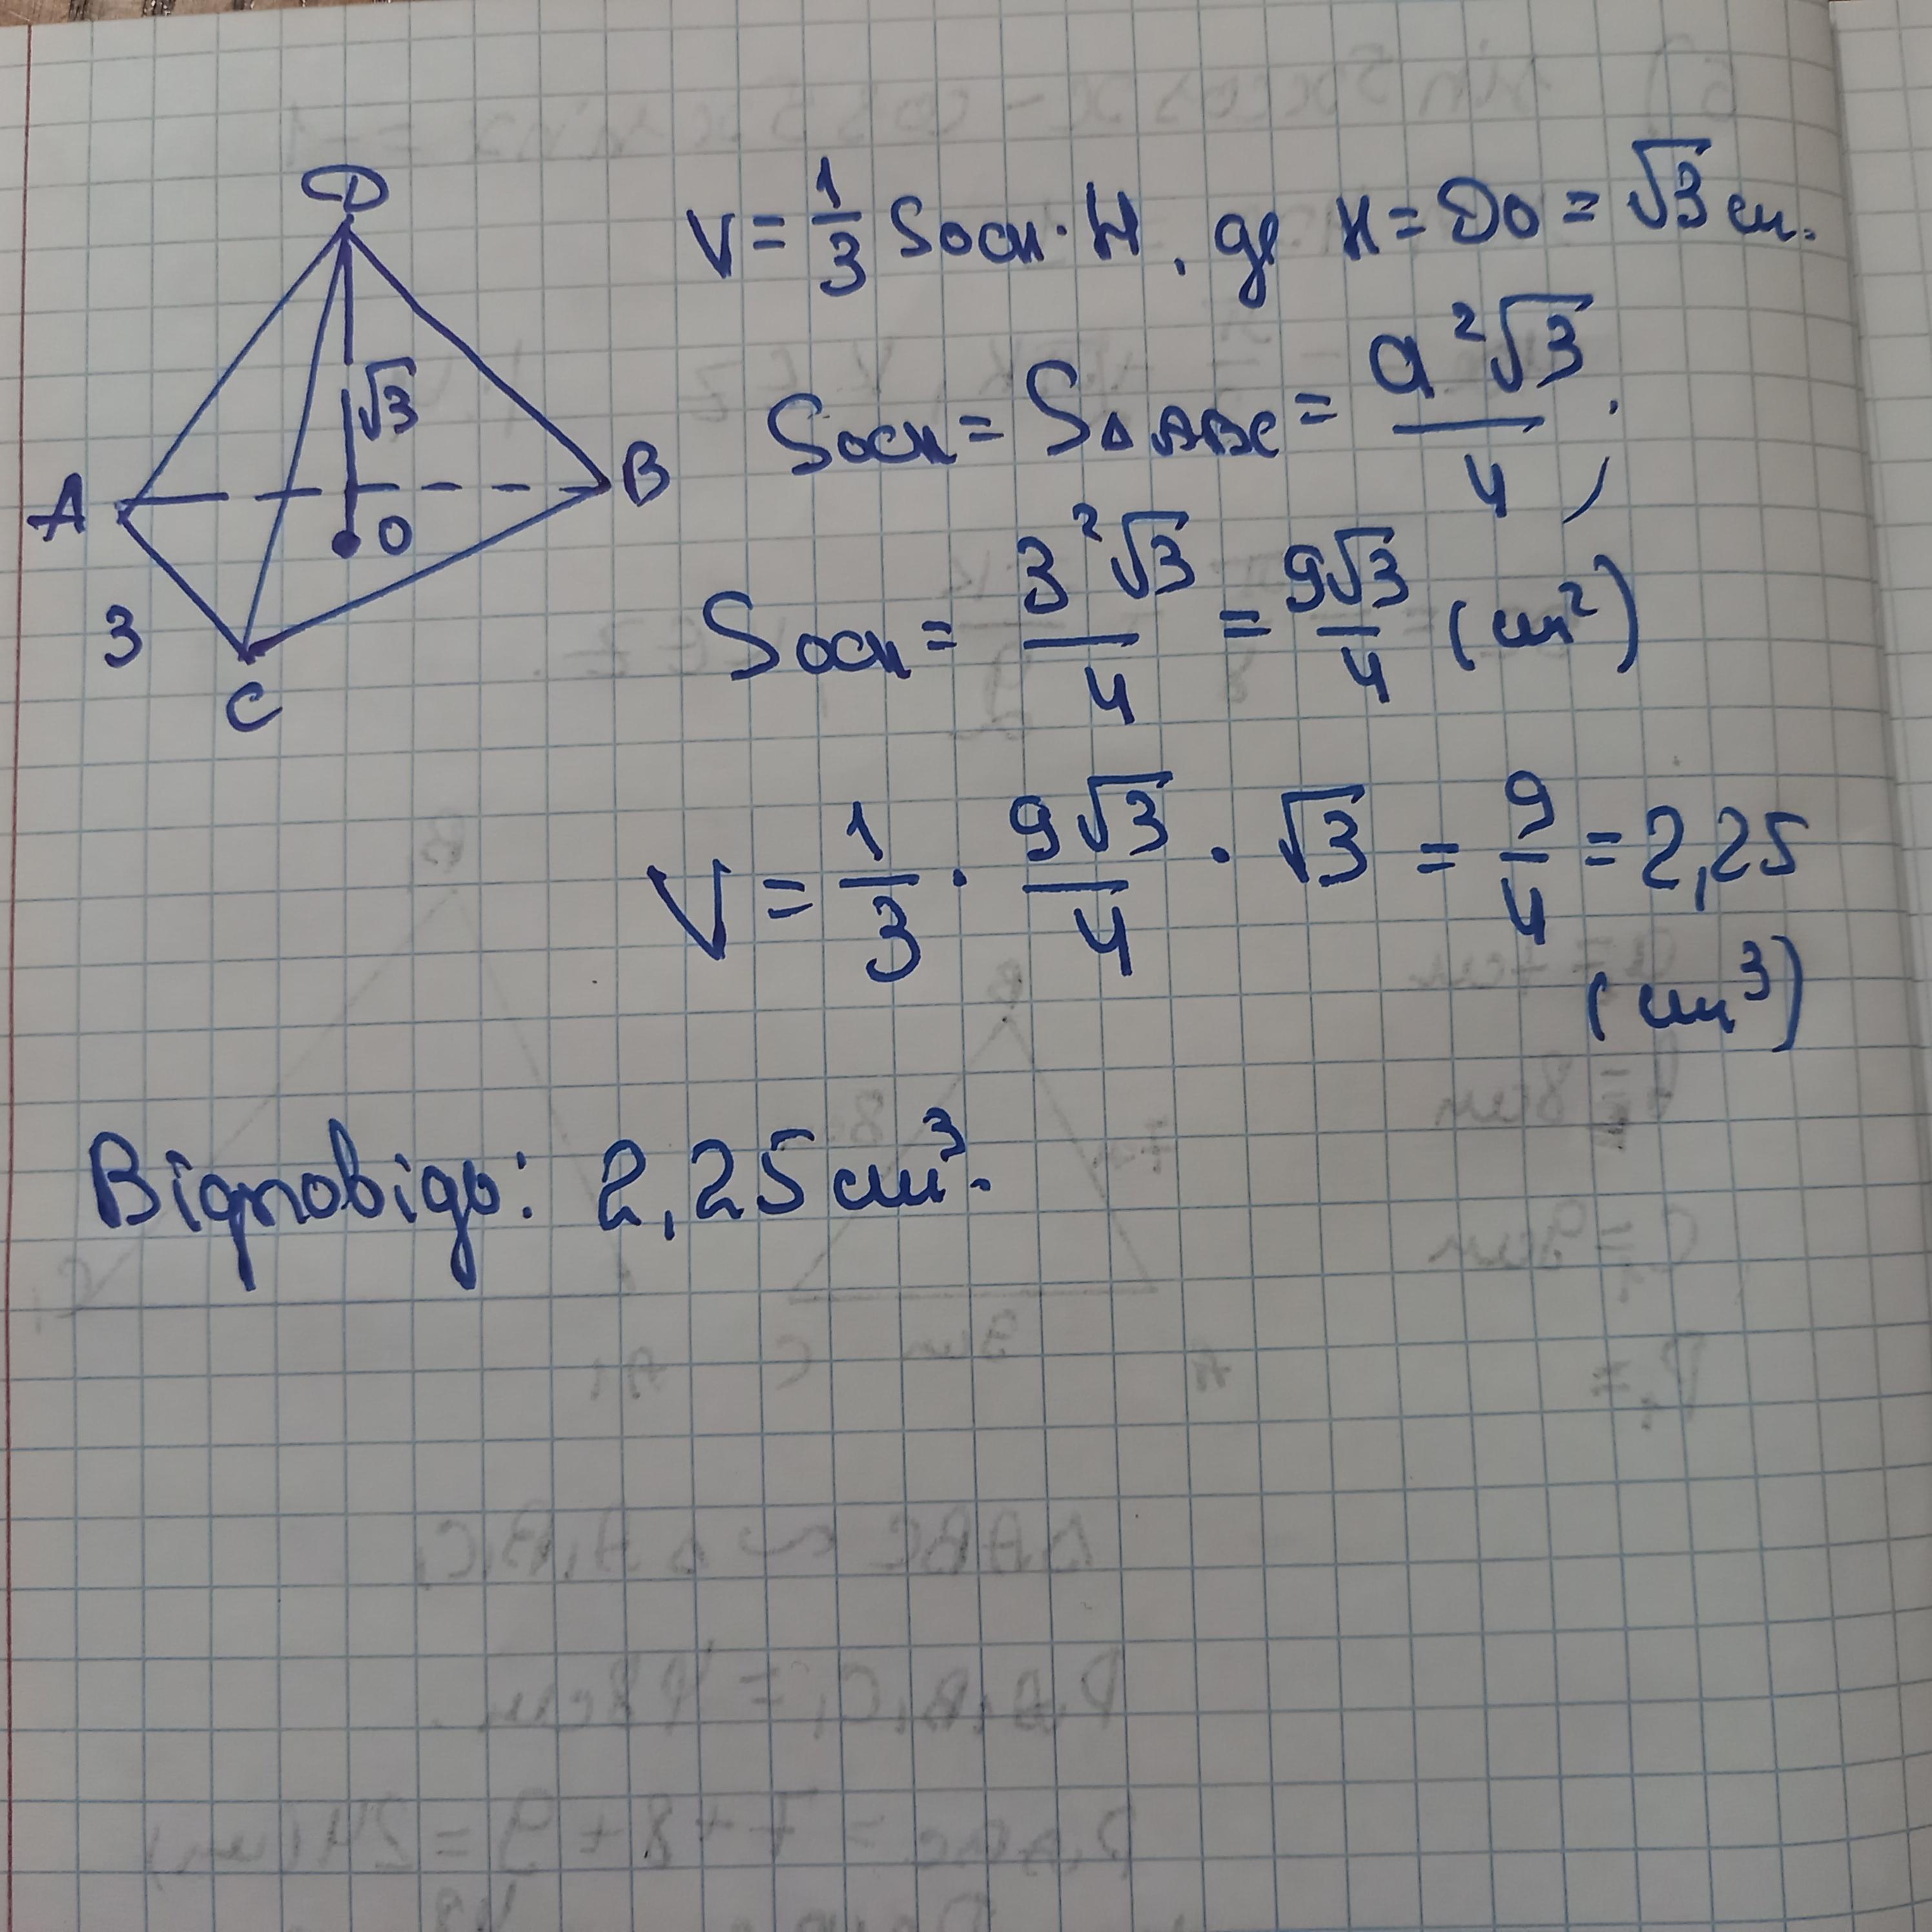 D
V = 1/3 Sосн · H, де H = DO = √3 см.
√3
Sосн = S△ABC = a²√3/4;
A
B
O
3
C
Sосн = 3²√3/4 = 9√3/4 (см²)
V = 1/3 · 9√3/4 · √3 = 9/4 = 2,25
(см³)
Відповідь: 2,25 см³.